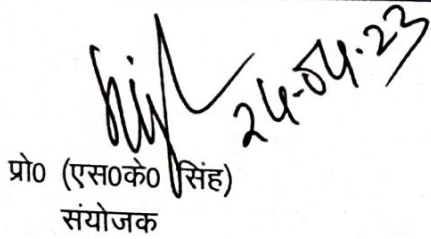 24-04-23
प्रो0 (एस0के0 सिंह)
संयोजक